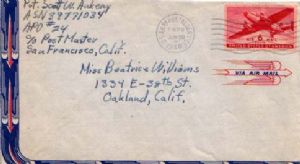 Pvt. Scott W. Ankeny
ASN 39771034
APO # 24
c/o Post Master
San Francisco, Calif.
Miss Beatrice Williams
1334 E-28th St.
Oakland, Calif.
UNITED STATES OF AMERICA
VIA AIR MAIL